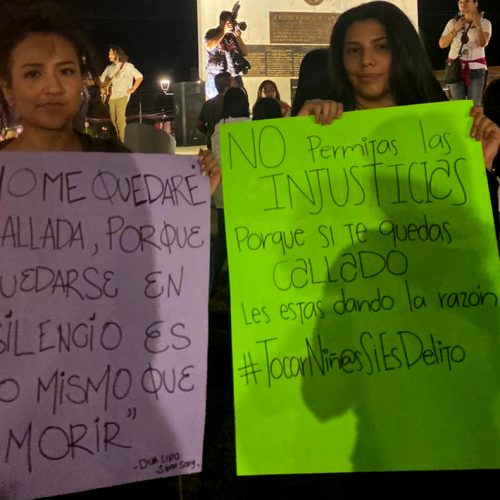 NO ME QUEDARÉ
ALLADA, PORQUE
UEDARSE EN
SILENCIO ES
O MISMO QUE
MORIR"
- DUA LIPA
Swan Song
NO Permitas las
INJUSTICI@S
Porque si te quedas
CALLADO
Les estas dando la razón
#TocarNiñ@sSiEsDelito